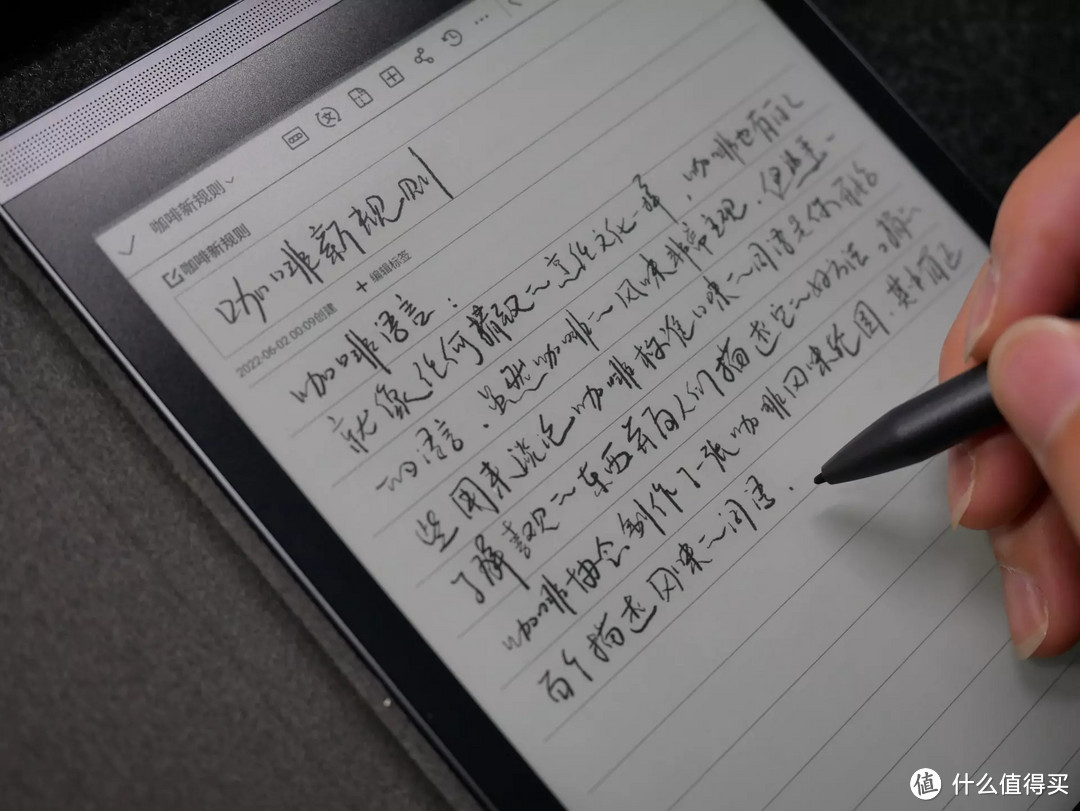 咖啡新规则
咖啡新规则
咖啡新规则
2022-06-02 00:09创建 + 编辑标签
咖啡语言：
就像任何精致的烹饪文化一样，咖啡也有自己
的语言．虽然咖啡的风味非常主观．但一
些用来谈论咖啡标准口味的词语是你开始
了解喜欢的东西并向人们描述它的好方法．
咖啡协会制作了一张咖啡风味轮图．其中有近
百个描述风味的词语．
值 什么值得买